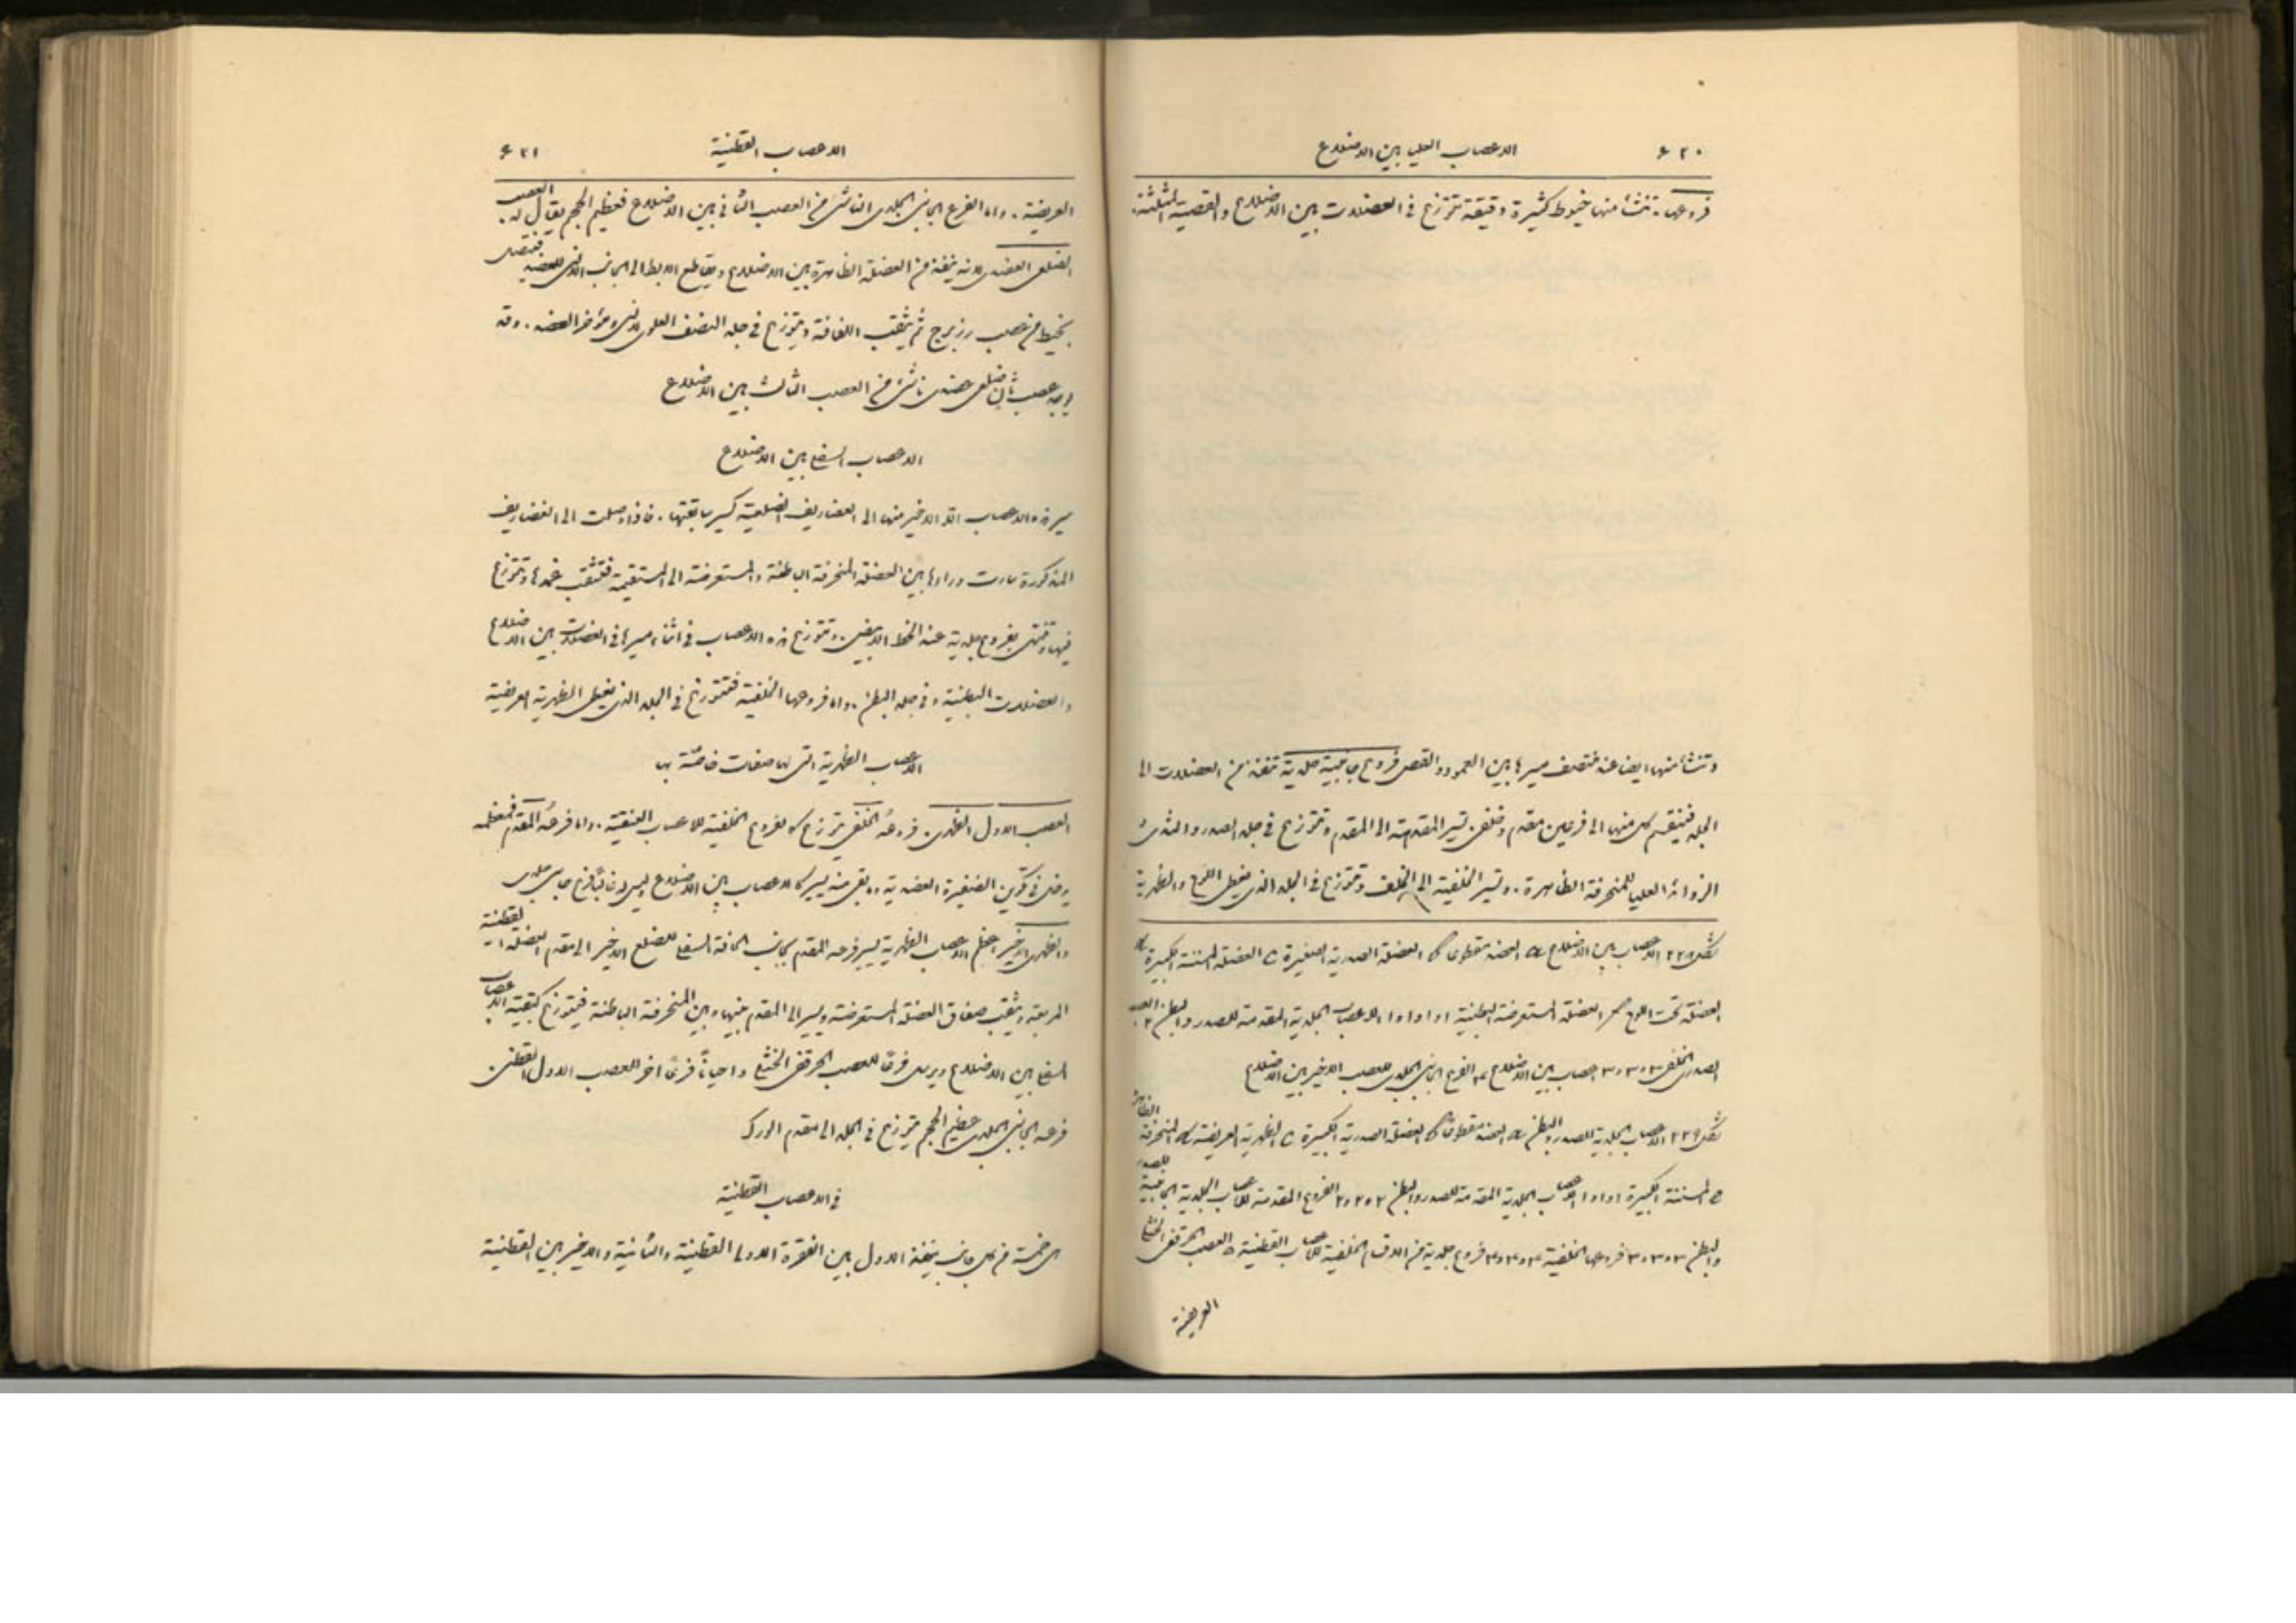 ٤٢٠ الاعصاب العليا بين الاضلاع
فروعها. تنشأ منها خيوط كثيرة دقيقة تتوزع في العضلات بين الاضلاع والقصية المثلثة.
وتنشأ منها ايضا عند منتصف مسيرها بين العمود والقص فروع جانبية جلدية تنفذ من العضلات الى
الجلد فينقسم كل منها الى فرعين مقدم وخلفي. تسير المقدمة الى المقدم وتتوزع في جلد الصدر والثدي
الزوائد العليا للمنحرفة الظاهرة. وتسير الخلفية الى الخلف وتتوزع في الجلد الذي يغطي اللوح والظهرية
شكل ٢٢٨ الاعصاب بين الاضلاع a الحضن مقطوعا b العضلة الصدرية الصغيرة c العضلة المسننة الكبيرة d
العضلة تحت اللوح العضلة المستعرضة البطنية ١ و١ و١ و١ الاعصاب الجلدية المقدمة للصدر والبطن ٢ العصب
الصدري الخلفي ٣ و٣ و٣ اعصاب بين الاضلاع ٤ الفرع الجانبي الجلدي للعصب الاخير بين الاضلاع
شكل ٢٢٩ الاعصاب الجلدية للصدر والبطن a مقطوعا b العضلة الصدرية الكبيرة c الظهرية العريضة d المنحرفة الظاهرة
المسننة الكبيرة ١ و١ و١ الاعصاب الجلدية المقدمة للصدر والبطن ٢ و٢ و٢ الفروع المقدمة للاعصاب الجلدية الجانبية للصدر
والبطن ٣ و٣ و٣ فروعها الخلفية ٤ و٤ و٤ فروع جلدية من الاقسام الخلفية للاعصاب القطنية ٥ العصب الحرقفي الخثلي
العريضة
الاعصاب القطنية ٤٢١
العريضة. واما الفرع الجانبي الجلدي الناشئ من العصب الثاني بين الاضلاع فعظيم الحجم يقال له العصب
الضلعي العضدي لانه ينفذ من العضلة الظاهرة بين الاضلاع ويقاطع الابط الى الجانب الانسي للعضد فيتصل
بخيط من عصب رزبرج ثم يثقب اللفافة ويتوزع في جلد النصف العلوي الانسي ومؤخر العضد. وقد
يوجد عصب ثان ضلعي عضدي ناشئ من العصب الثالث بين الاضلاع
الاعصاب السفلى بين الاضلاع
مسير هذه الاعصاب الا الاخير منها الى الغضاريف الضلعية كسير سابقتها. فاذا وصلت الى الغضاريف
المذكورة سارت وراءها بين العضلة المنحرفة الباطنة والمستعرضة الى المستقيمة فتثقب غمدها وتتوزع
فيها وتنتهي بفروع جلدية عند الخط الابيض. وتتوزع هذه الاعصاب في اثناء مسيرها في العضلات بين الاضلاع
والعضلات البطنية وفي جلد البطن. واما فروعها الخلفية فتتوزع في الجلد الذي يغطي الظهرية العريضة
الاعصاب الظهرية التي لها صفات خاصة بها
العصب الاول الظهري. فرعه الخلفي يتوزع كالفروع الخلفية للاعصاب العنقية. واما فرعه المقدم فمعظمه
يدخل في تكوين الضفيرة العضدية وما بقي منه يسير كالاعصاب بين الاضلاع وليس له غالبا فرع جانبي جلدي
والظهري الاخير اعظم الاعصاب الظهرية يسير فرعه المقدم بجانب الحافة السفلى للضلع الاخير الى مقدم العضلة القطنية
المربعة ويثقب صفاق العضلة المستعرضة ويسير الى المقدم بينها وبين المنحرفة الباطنة فيتوزع كبقية الاعصاب
السفلى بين الاضلاع ويرسل فرعا للعصب الحرقفي الخثلي واحيانا فرعا اخر للعصب الاول القطني.
فرعه الجانبي الجلدي عظيم الحجم يتوزع في الجلد الى مقدم الورك
في الاعصاب القطنية
هي خمسة من كل جانب ينفذ الاول بين الفقرة الاولى القطنية والثانية والاخير بين القطنية